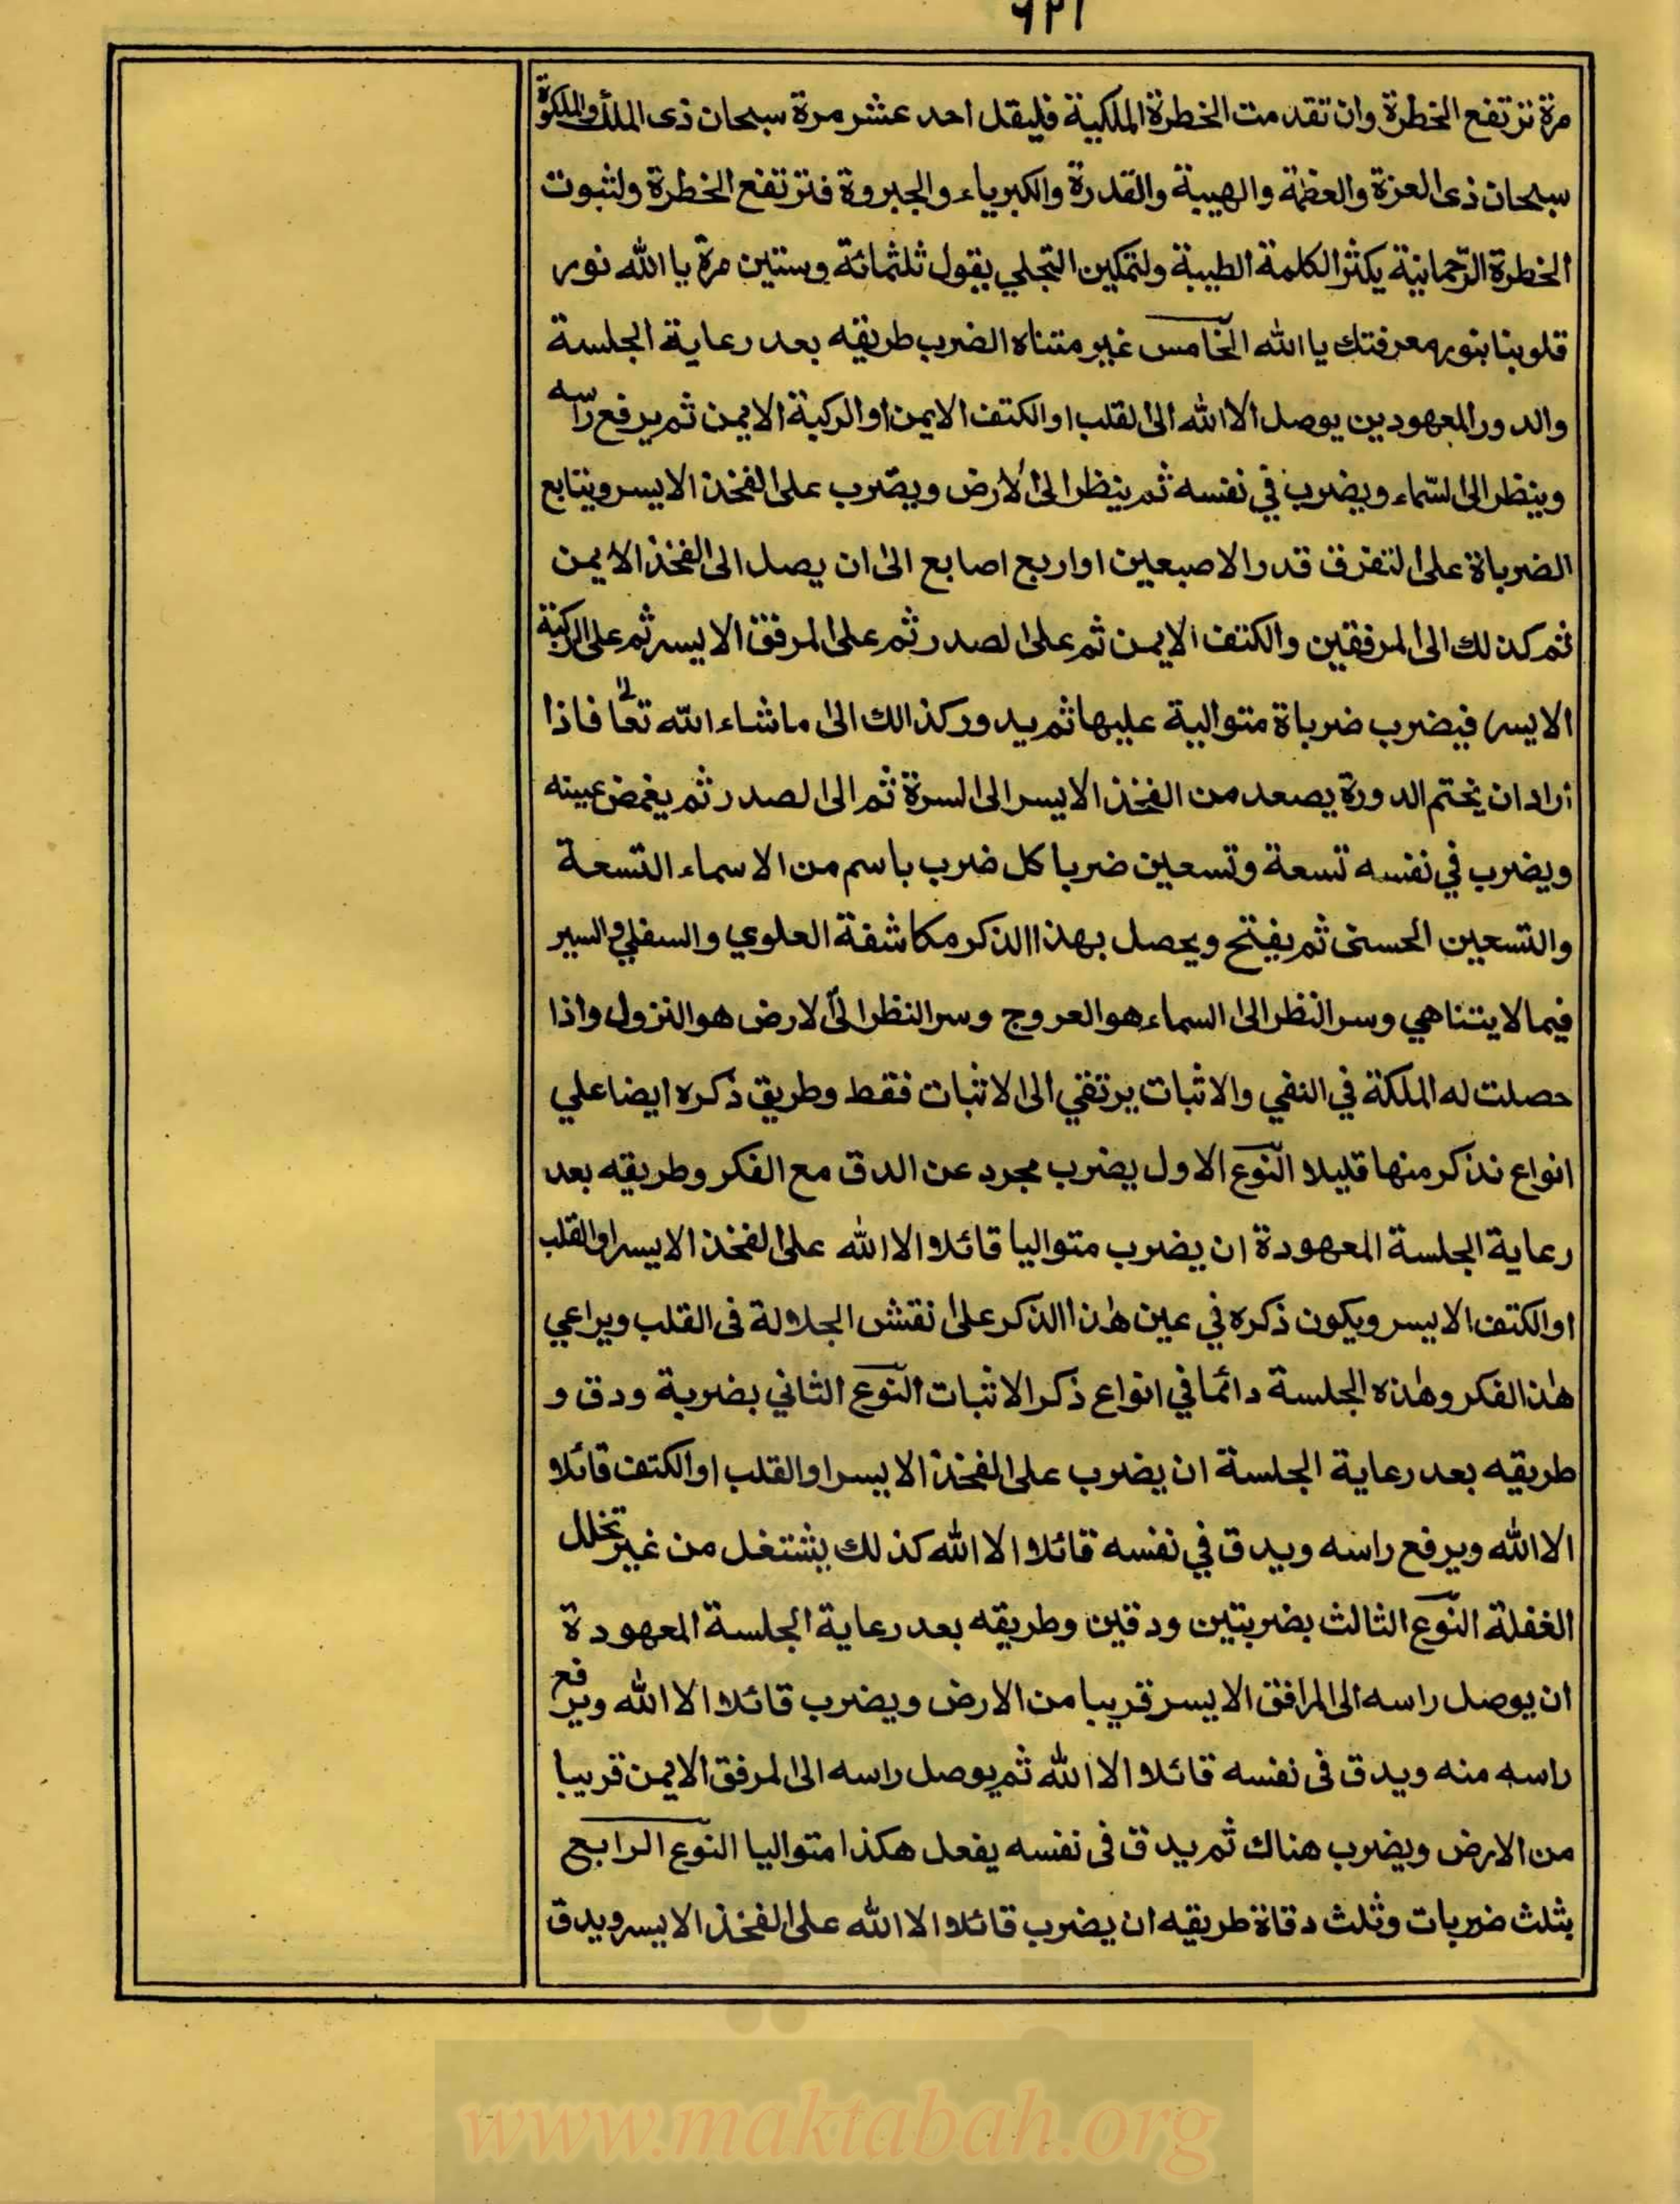 ٦٢١
مرة ترتفع الخطرة وان تقدمت الخطرة الملكية فليقل احد عشر مرة سبحان ذى الملك والملكوة
سبحان ذى العزة والعظمة والهيبة والقدرة والكبرياء والجبروة فترتفع الخطرة ولثبوت
الخطرة الرّحمانية يكثر الكلمة الطيبة ولتمكين التجلي يقول ثلثمائة وستين مرة يا الله نور
قلوبنا بنور معرفتك يا الله الخامس غير متناه الضرب طريقه بعد رعاية الجلسة
والدور المعهودين يوصل الا الله الى القلب او الكتف الايمن او الركبة الايمن ثم يرفع راسه
وينظر الى السّماء ويضرب في نفسه ثم ينظر الى الارض ويضرب على الفخذ الايسر ويتابع
الضرباة على التفرق قدر الاصبعين او اربع اصابع الى ان يصل الى الفخذ الايمن
ثم كذلك الى المرفقين والكتف الايمن ثم على الصدر ثم على المرفق الايسر ثم على الركبة
الايسر فيضرب ضرباة متوالية عليها ثم يدور كذالك الى ماشاء الله تعالى فاذا
اراد ان يختم الدورة يصعد من الفخذ الايسر الى السرة ثم الى الصدر ثم يغمض عينه
ويضرب في نفسه تسعة وتسعين ضربا كل ضرب باسم من الاسماء التسعة
والتسعين الحسنى ثم يفتح ويحصل بهذا الذكر مكاشفة العلوي والسفلي والسير
فيما لا يتناهي وسر النظر الى السماء هو العروج وسر النظر الى الارض هو النزول واذا
حصلت له الملكة في النفي والاثبات يرتقي الى الاثبات فقط وطريق ذكره ايضا علي
انواع نذكر منها قليلا النّوع الاول يضرب مجرد عن الدق مع الفكر وطريقه بعد
رعاية الجلسة المعهودة ان يضرب متواليا قائلا الا الله على الفخذ الايسر او القلب
او الكتف الايسر ويكون ذكره في عين هذا الذكر على نقش الجلالة فى القلب ويراعي
هذا الفكر وهذه الجلسة دائما في انواع ذكر الاثبات النّوع الثاني بضربة ودق و
طريقه بعد رعاية الجلسة ان يضرب على الفخذ الايسر او القلب او الكتف قائلا
الا الله ويرفع راسه ويدق في نفسه قائلا الا الله كذلك يشتغل من غير تخلل
الغفلة النّوع الثالث بضربتين ودقين وطريقه بعد رعاية الجلسة المعهودة
ان يوصل راسه الى المرافق الايسر قريبا من الارض ويضرب قائلا الا الله ويرفع
راسه منه ويدق فى نفسه قائلا الا الله ثم يوصل راسه الى المرفق الايمن قريبا
من الارض ويضرب هناك ثم يدق فى نفسه يفعل هكذا متواليا النّوع الرابع
بثلث ضربات وثلث دقاة طريقه ان يضرب قائلا الا الله على الفخذ الايسر ويدق
www.maktabah.org